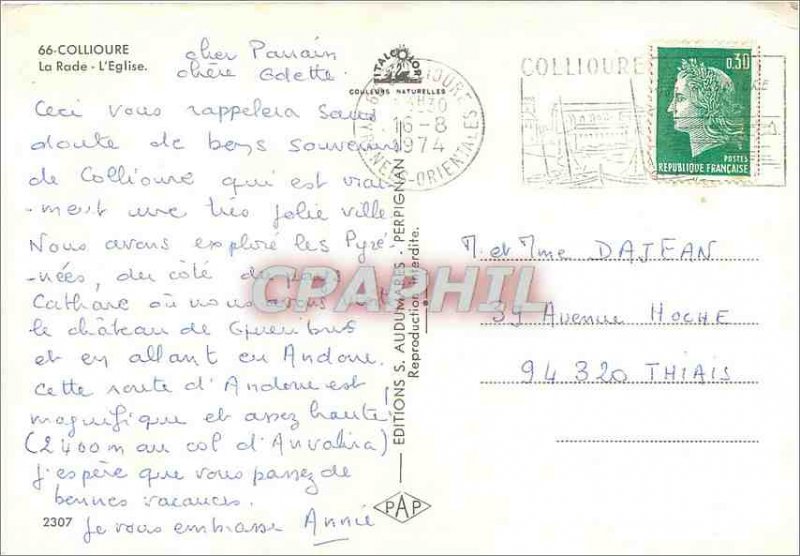 66-COLLIOURE
La Rade - L'Eglise.
cher Parrain
chère Odette
Ceci vous rappelera sans
doute de bons souvenirs
de Collioure qui est vrai-
-ment une très jolie ville
Nous avons exploré les Pyré-
-nées, du côté du pays
Cathare où nous avons
le château de Queribus
et en allant en Andorre.
Cette route d'Andorre est
magnifique et assez haute!
(2400 m au col d'Envalira)
J'espère que vous passez de
bonnes vacances.
Je vous embrasse Annie
2307
ITALCOLOR
COULEURS NATURELLES
COLLIOURE
16-8
1974
PYRENEES-ORIENTALES
EDITIONS S. AUDUMARES - PERPIGNAN
Reproduction interdite.
PAP
CPAPHIL
COLLIOURE
0,30
POSTES
REPUBLIQUE FRANÇAISE
M. et Mme DAJEAN
39 Avenue HOCHE
94 320 THIAIS